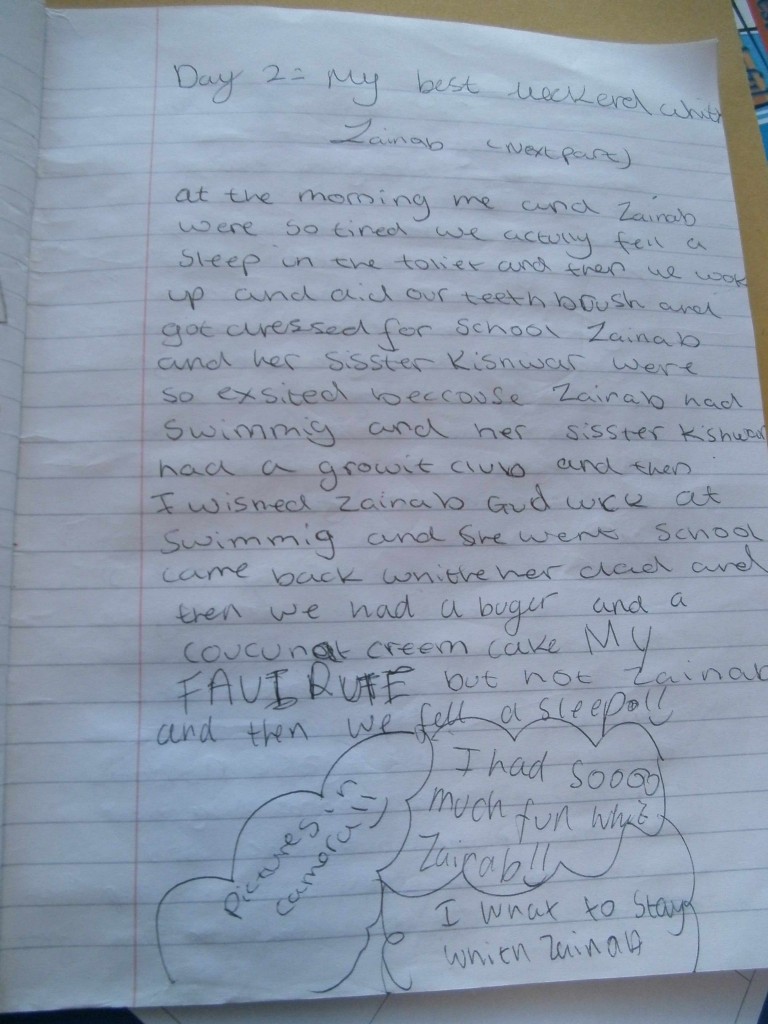 Day 2= My best weekend whith
Zainab (Next part)
at the morning me and Zainab
were so tired we actully fell a
sleep in the toliet and then we wok
up and did our teeth brush and
got dressed for school Zainab
and her sisster Kishwar were
so exsited beccouse Zainab had
swimmig and her sisster Kishwar
had a growit club and then
I wished Zainab Gud luck at
swimmig and she went school
came back whithe her dad and
then we had a buger and a
coucunat creem cake My
FAVIRUTE but not Zainab
and then we fell a sleep!!
I had soooo
much fun whit
Zainab!!
Pictures in
camera!!
I what to stay
whith Zainab